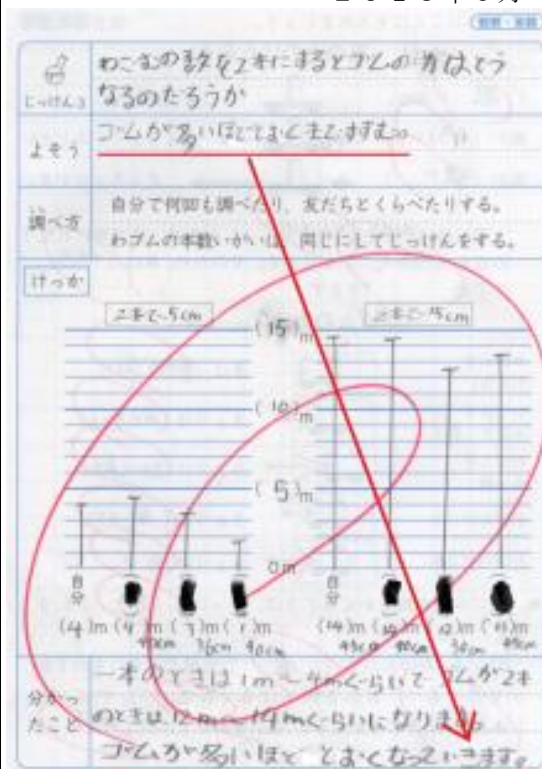 わごむの数を2本にするとゴムの力はどう
じっけん3
なるのだろうか
よそう
ゴムが多いほどとおくまですすむ。
調べ方
自分で何回も調べたり、友だちとくらべたりする。
わゴムの本数いがいは、同じにしてじっけんをする。
けっか
2本で5cm
2本で15cm
(15)m
(10)m
(5)m
0m
自分
自分
(4)m (4)m (3)m (1)m
40cm 36cm 40cm
(14)m (14)m (12)m (13)m
分かったこと
一本のときは1m〜4mくらいで ゴムが2本
のときは12m〜14mくらいになります。
ゴムが多いほど とおくなっていきます。